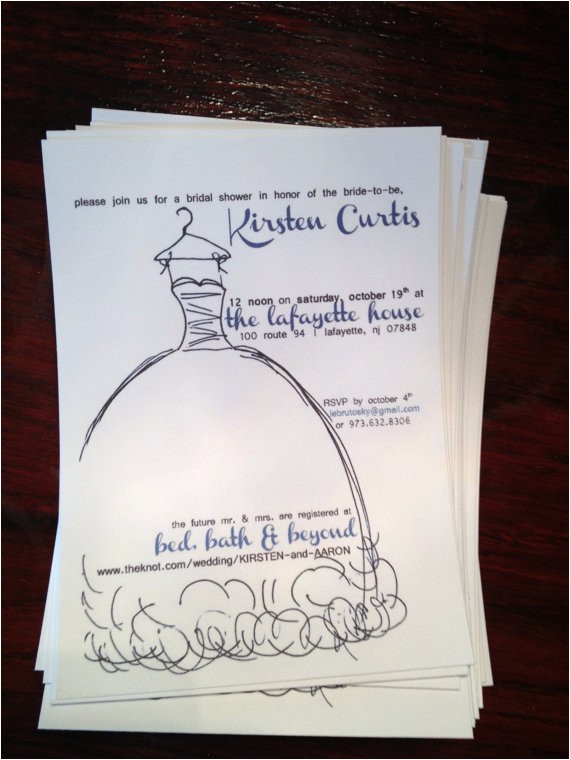 please join us for a bridal shower in honor of the bride-to-be,
Kirsten Curtis
12 noon on saturday, october 19th at
the lafayette house
100 route 94 | lafayette, nj 07848
RSVP by october 4th
lebrutosky@gmail.com
or 973.632.8306
the future mr. & mrs. are registered at
bed, bath & beyond
www.theknot.com/wedding/KIRSTEN-and-AARON